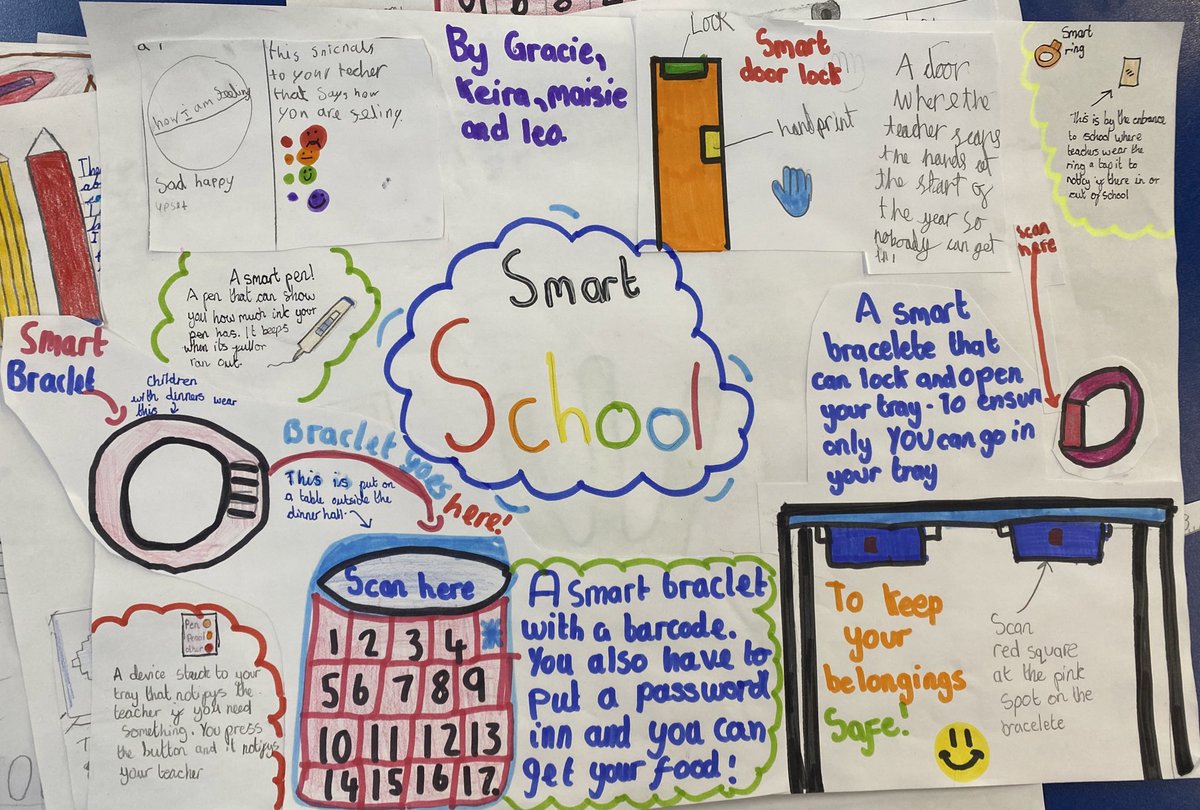 how I am feeling
Sad happy
upset
this snicnals
to your techer
that says how
you are seling.
By Gracie,
Keira, Maisie
and lea.
LOCK
Smart
door lock
handprint
A door
where the
teacher scans
the hands at
the start of
the year so
nobody can get
in!
Smart
ring
This is by the entrance
to school where
teachers wear the
ring a tap it to
notify if there in or
out of school
A smart pen!
A pen that can show
you how much ink your
pen has. It beeps
when its full or
ran out.
Smart
School
scan
here
A smart
bracelete that
can lock and open
your tray. To ensun
only YOU can go in
your tray
Smart
Braclet
Children
with dinners wear
this
Braclet goes
here!
This is put on
a table outside the
dinner hall.
Scan here
1 2 3 4 *
5 6 7 8 9
10 11 12 13
14 15 16 17.
A smart braclet
with a barcode.
You also have to
put a password
inn and you can
get your food!
To keep
your
belongings
Safe!
Scan
red square
at the pink
spot on the
bracelete
Pen
Proof
other
A device stuck to your
tray that notifys the
teacher if you need
something. You press
the button and it notifys
your teacher